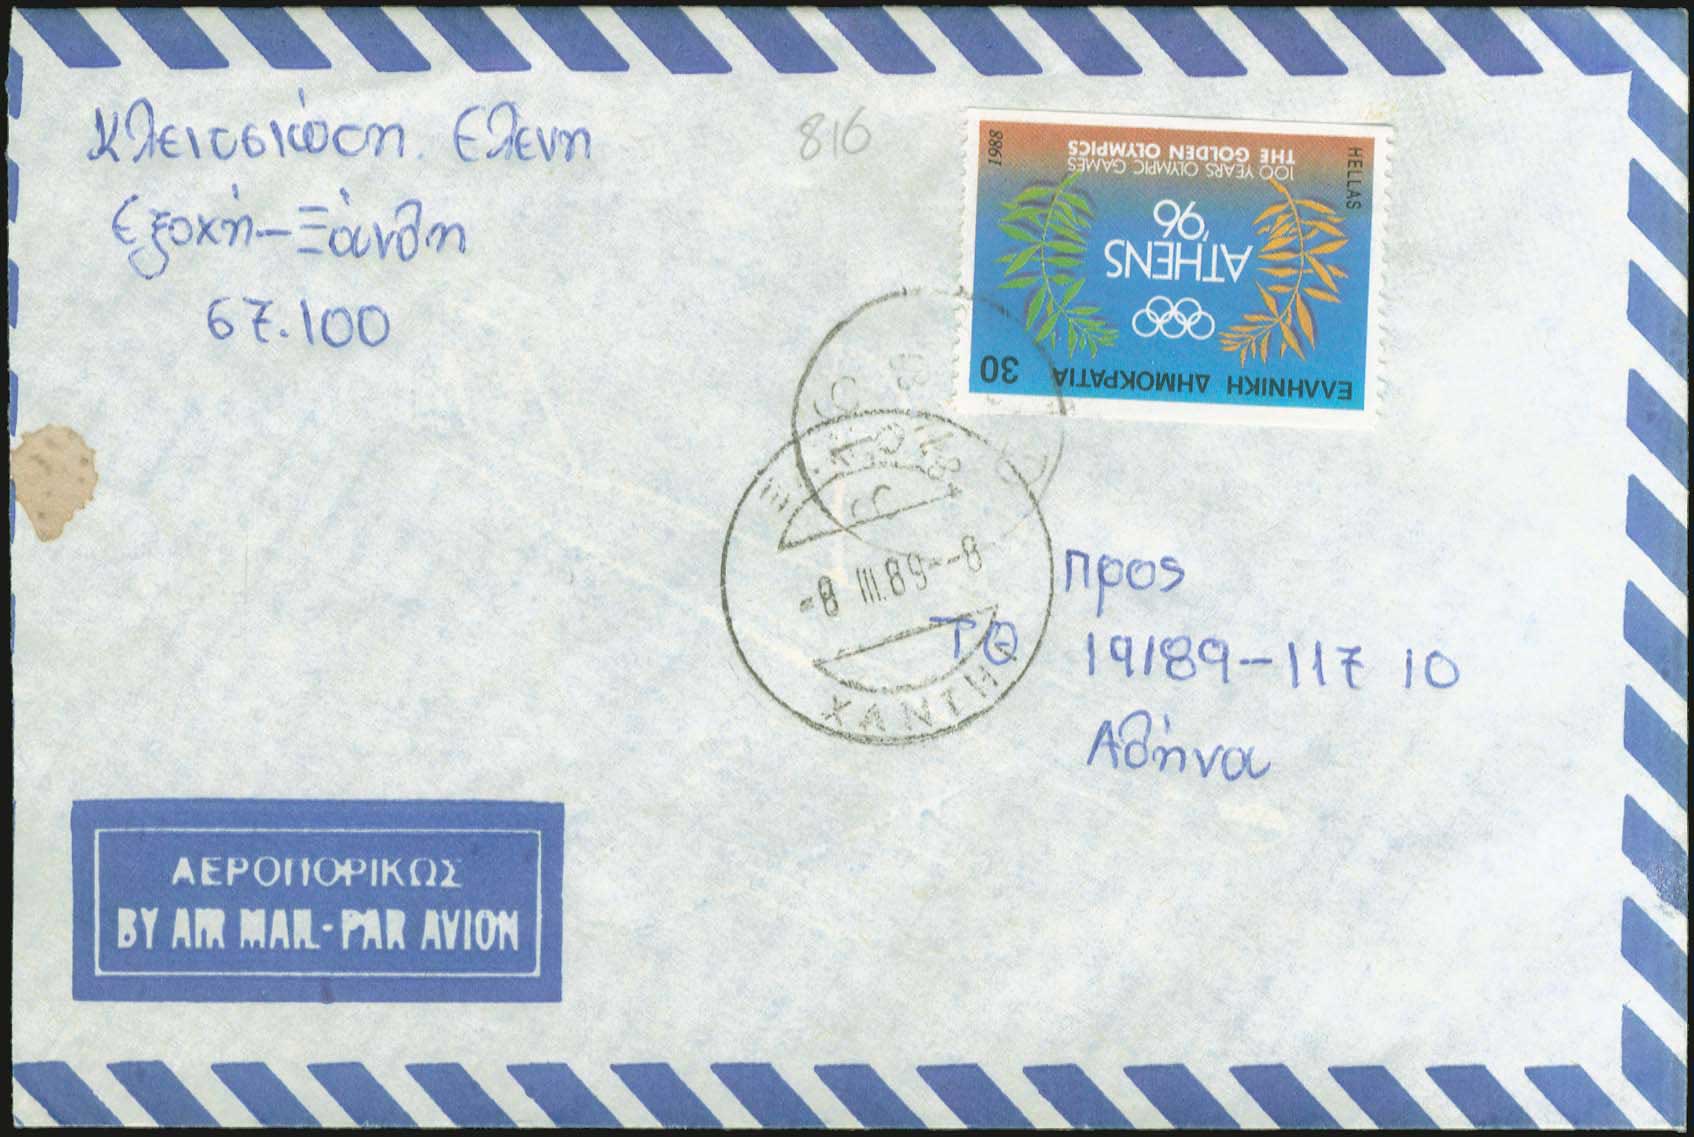 Ελενη
Εξοχή-Ξάνθη
67.100
816
1988
HELLAS
100 YEARS OLYMPIC GAMES
THE GOLDEN OLYMPICS
ATHENS
'96
ΕΛΛΗΝΙΚΗ ΔΗΜΟΚΡΑΤΙΑ 30
-8 III.89--8
ΧΑΝΤΗ
προς
ΤΘ 19189-117 10
Αθήνα
ΑΕΡΟΠΟΡΙΚΩΣ
BY AIR MAIL-PAR AVION